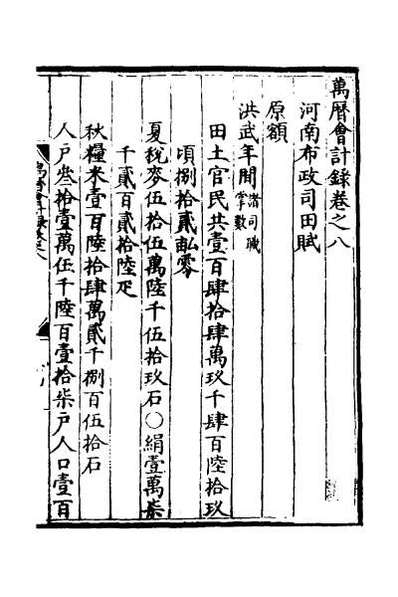 萬曆會計録卷之八
河南布政司田賦
原額
洪武年間諸司職掌數
田土官民共壹百肆拾肆萬玖千肆百陸拾玖
頃捌拾貳畝零
夏稅麥伍拾伍萬陸千伍拾玖石○絹壹萬柒
千貳百貳拾陸疋
秋糧米壹百陸拾肆萬貳千捌百伍拾石
人戶叁拾壹萬伍千陸百壹拾柒戶人口壹百